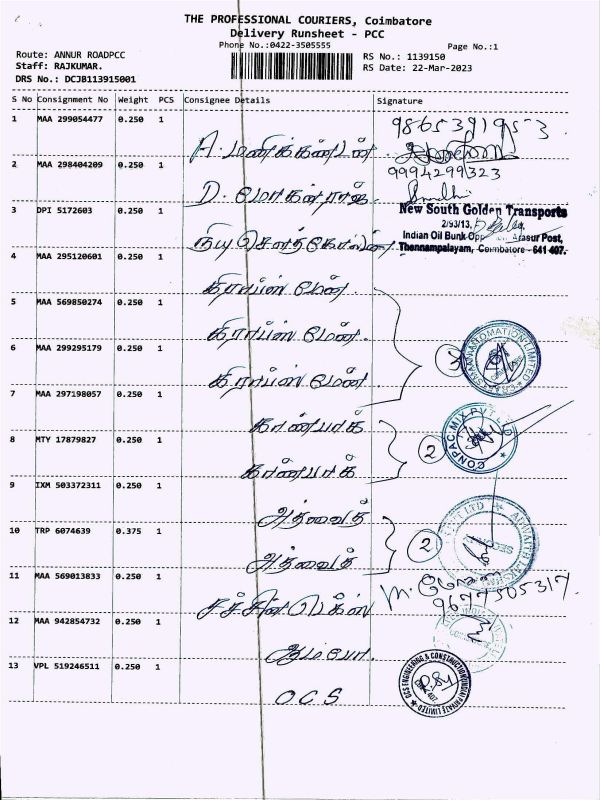 THE PROFESSIONAL COURIERS, Coimbatore
Delivery Runsheet - PCC
Phone No.:0422-3505555
Page No.:1
Route: ANNUR ROADPCC
RS No.: 1139150
Staff: RAJKUMAR.
RS Date: 22-Mar-2023
DRS No.: DCJB113915001
S No Consignment No Weight PCS Consignee Details Signature
1 MAA 299054477 0.250 1 9865391953
A. மணிகண்டன்
2 MAA 298404209 0.250 1 9994299323
D. மோகன்ராஜ்
3 DPI 5172603 0.250 1 New South Golden Transports
2/93/13,
Indian Oil Bunk Opp Arasur Post,
Thennampalayam, Coimbatore - 641 407.
நியு சௌத் கோல்டன்
4 MAA 295120601 0.250 1
கிராப்ஸ் மேன்
5 MAA 569850274 0.250 1
கிராப்ஸ் மேன்
6 MAA 299295179 0.250 1 3
கிராப்ஸ் மேன்
7 MAA 297198057 0.250 1
கான்பாக்
8 MTY 17879827 0.250 1 2 CONPAC MIX PVT LTD
கான்பாக்
9 IXM 503372311 0.250 1
அத்வைத்
10 TRP 6074639 0.375 1 2
அத்வைத்
11 MAA 569013833 0.250 1 M. 9677505317
12 MAA 942854732 0.250 1
13 VPL 519246511 0.250 1 OCS ENGINEERING & CONSTRUCTION(INDIA) PRIVATE LIMITED
O.C.S